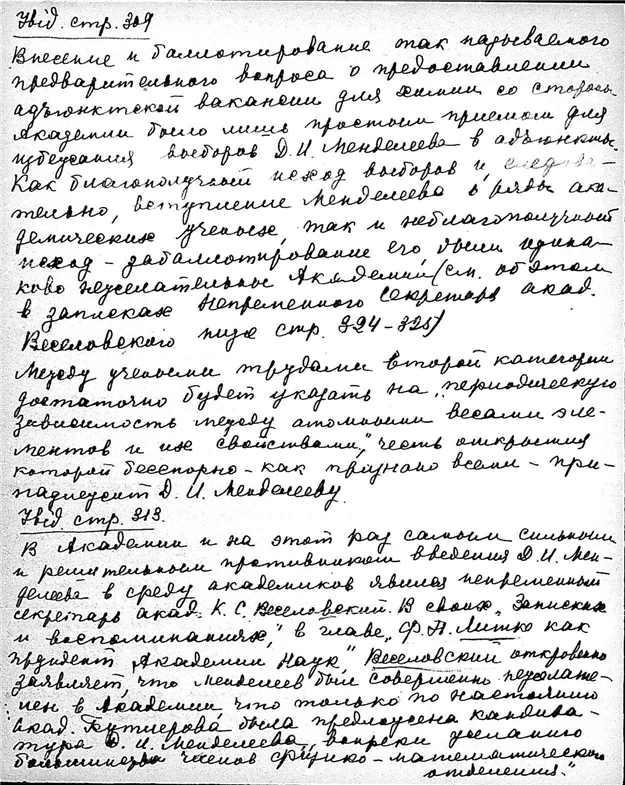 Ibid. стр. 309
Внесение и баллотирование так называемого
предварительного вопроса о предоставлении
адъюнктской вакансии для химии со стороны
Академии было лишь простым приемом для
избежания выборов Д.И. Менделеева в адъюнкты.
Как благополучный исход выборов и, следова-
тельно, вступление Менделеева в ряды ака-
демических ученых, так и неблагополучный
исход – забаллотирование его, были одина-
ково нежелательные Академии (см. об этом
в записках Непременного Секретаря акад.
Веселовского ниже стр. 324–325)
Между учеными трудами второй категории
достаточно будет указать на „периодическую
зависимость между атомными весами эле-
ментов и их свойствами", честь открытия
которой бесспорно – как признано всеми – при-
надлежит Д. И. Менделееву.
Ibid. стр. 313.
В Академии и на этот раз самым сильным
и решительным противником введения Д.И. Мен-
делеева в среду академиков явился непременный
секретарь акад. К.С. Веселовский. В своих „Записках
и воспоминаниях", в главе „Ф.П. Литке как
президент Академии Наук", Веселовский откровенно
заявляет, что Менделеев был совершенно нежелате-
лен в Академии, что только по настоянию
акад. Бутлерова была предложена кандида-
тура Д. И. Менделеева, вопреки желанию
большинства членов физико-математического
отделения."